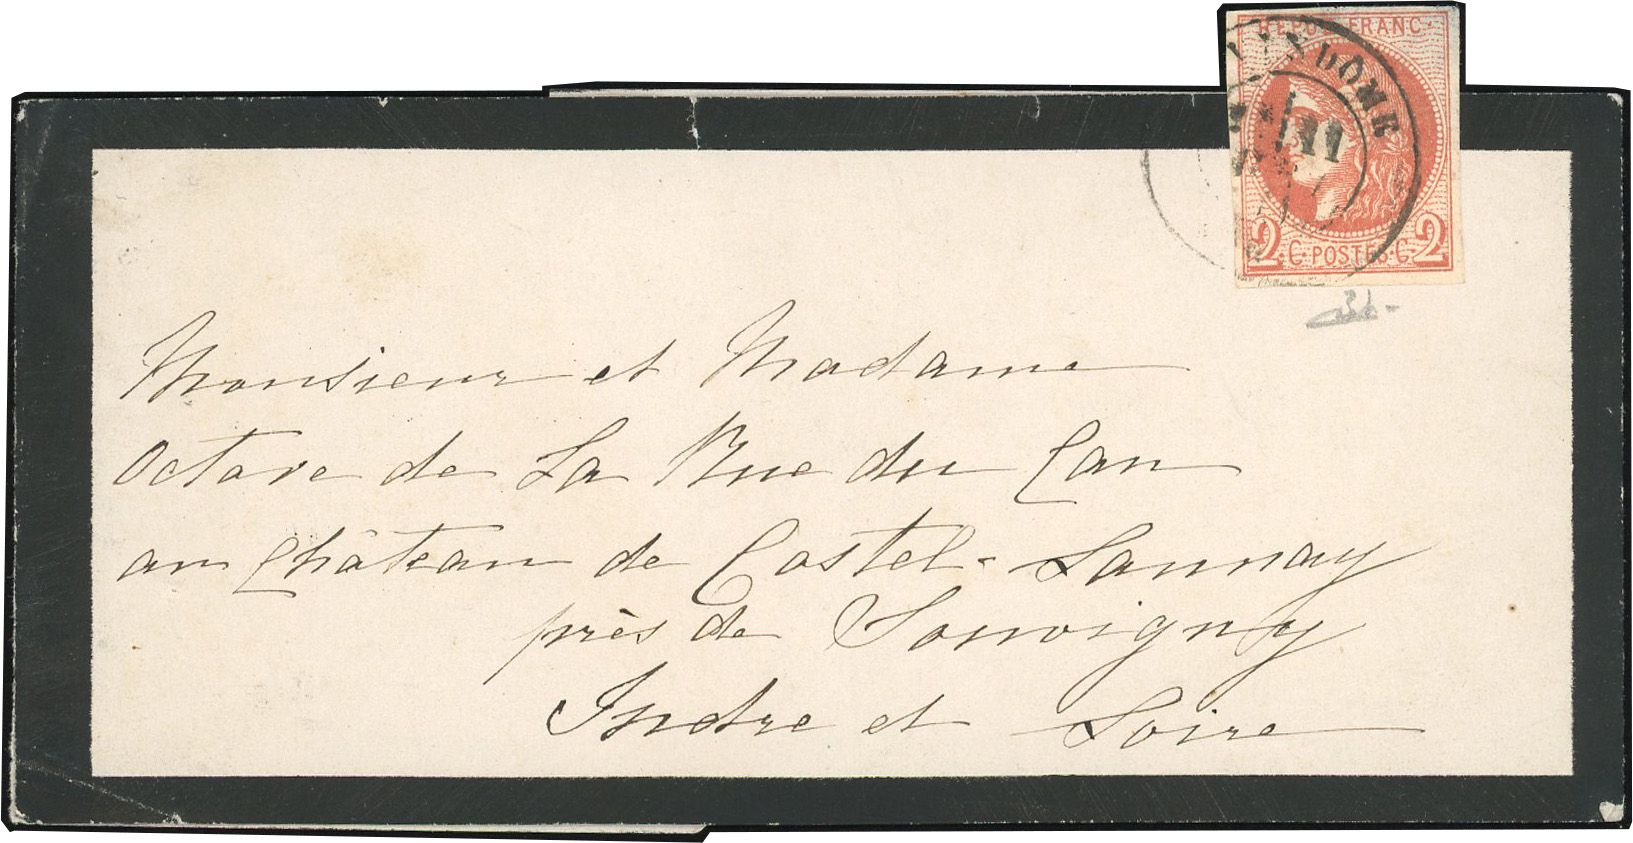 REPUB·FRANC·
VENDOME
11
2·C·POSTES·C·2
Monsieur et Madame
Octave de La Rue du Can
au Château de Castel-Launay
près de Souvigny
Indre et Loire